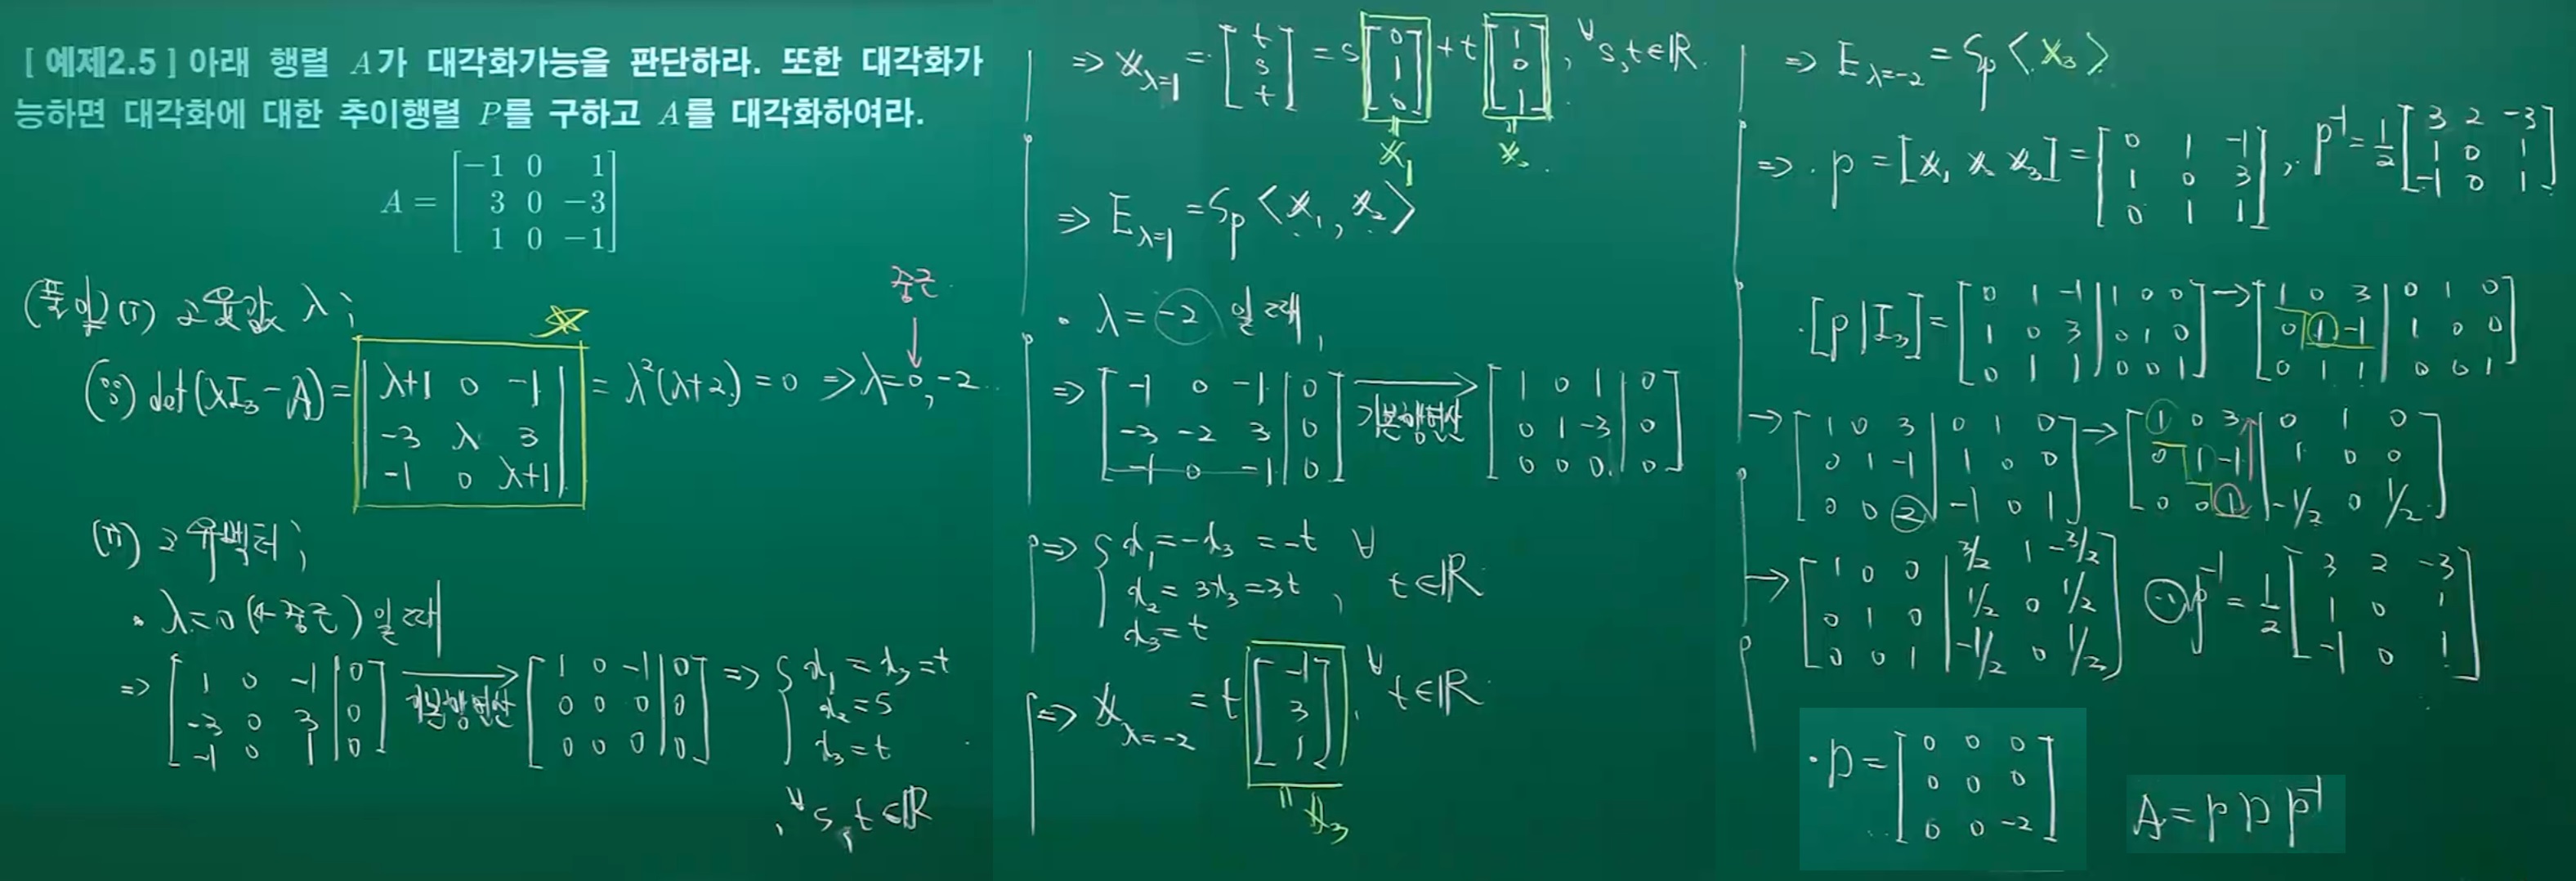 [ 예제2.5 ] 아래 행렬 A가 대각화가능을 판단하라. 또한 대각화가
능하면 대각화에 대한 추이행렬 P를 구하고 A를 대각화하여라.
A = [-1 0 1
3 0 -3
1 0 -1]
(풀이) (i) 고윳값 λ;
중근
↓
(∵) det(λI₃ - A) = |λ+1 0 -1
-3 λ 3
-1 0 λ+1| = λ²(λ+2) = 0 => λ = 0, -2
(ii) 고유벡터;
• λ=0 (← 중근) 일 때
=> [1 0 -1 | 0
-3 0 3 | 0
-1 0 1 | 0] → 기본행연산 [1 0 -1 | 0
0 0 0 | 0
0 0 0 | 0] => { x₁ = x₃ = t
x₂ = s
x₃ = t
, ∀s,t∈ℝ
=> x_λ=1 = [t
s
t] = s[0
1
0] + t[1
0
1], ∀s,t∈ℝ.
‖ x₁ ‖ x₂
=> E_λ=1 = Sp<x₁, x₂>
• λ = -2 일 때,
=> [-1 0 -1 | 0
-3 -2 3 | 0
-1 0 -1 | 0] → 기본행연산 [1 0 1 | 0
0 1 -3 | 0
0 0 0 | 0]
=> { x₁ = -x₃ = -t
x₂ = 3x₃ = 3t
x₃ = t , ∀t∈ℝ
=> x_λ=-2 = t[-1
3
1], ∀t∈ℝ
‖ x₃
=> E_λ=-2 = Sp<x₃>
=> P = [x₁ x₂ x₃] = [0 1 -1
1 0 3
0 1 1], P⁻¹ = 1/2 [3 2 -3
1 0 1
-1 0 1]
• [P | I₃] = [0 1 -1 | 1 0 0
1 0 3 | 0 1 0
0 1 1 | 0 0 1] → [1 0 3 | 0 1 0
0 1 -1 | 1 0 0
0 1 1 | 0 0 1]
→ [1 0 3 | 0 1 0
0 1 -1 | 1 0 0
0 0 2 | -1 0 1] → [1 0 3 | 0 1 0
0 1 -1 | 1 0 0
0 0 1 | -1/2 0 1/2]
→ [1 0 0 | 3/2 1 -3/2
0 1 0 | 1/2 0 1/2
0 0 1 | -1/2 0 1/2] ∴ P⁻¹ = 1/2 [3 2 -3
1 0 1
-1 0 1]
• D = [0 0 0
0 0 0
0 0 -2]
A = P D P⁻¹